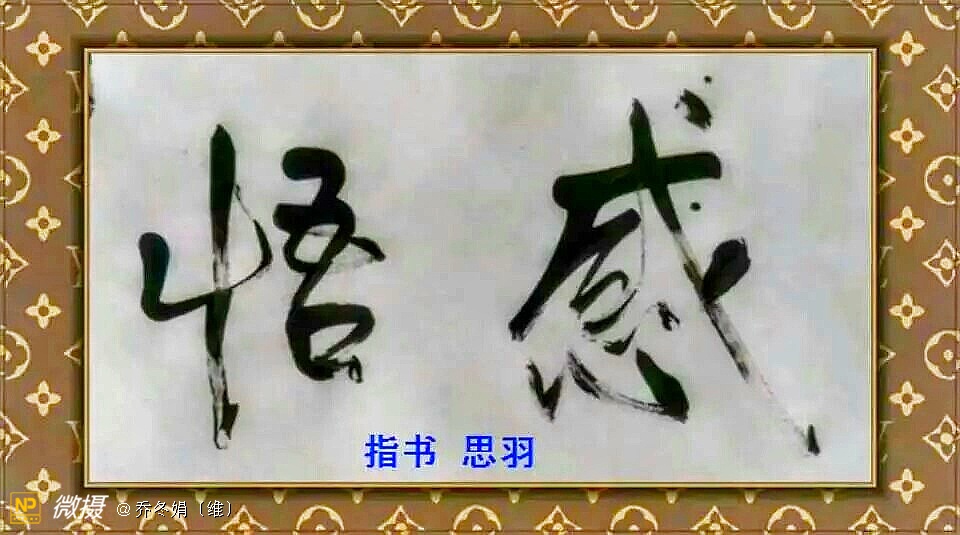 感悟
指书 思羽
NP 微摄 @乔冬娟〔维〕